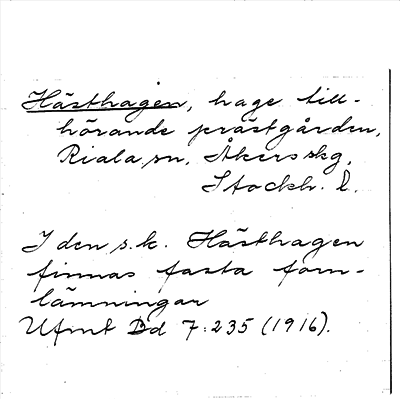 Hästhagen, hage till-
hörande prästgården,
Riala sn, Åkers skg,
Stockh. l.
I den s.k. Hästhagen
finnas fasta forn-
lämningar
Ufmt Bd 7:235 (1916).